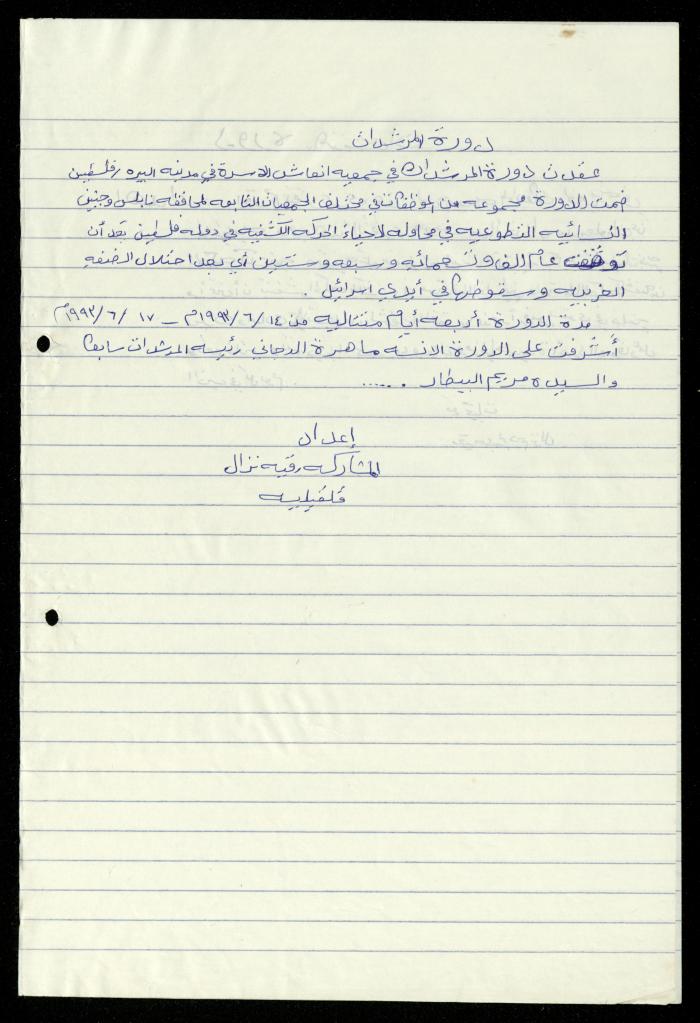 دورة المرشدات
عقدت دورة المرشدات في جمعيه انعاش الاسرة في مدينه البيره / فلسطين
ضمت الدورة مجموعه من الموظفات في مختلف الجمعيات التابعه لمحافظه نابلس وجنين
النسائيه التطوعيه في محاوله لاحياء الحركه الكشفيه في دوله فلسطين بعد أن
توقفت عام الف وتسعمائه وسبعه وستين أي بعد احتلال الضفه
الغربيه وسقوطها في أيدي اسرائيل .
مدة الدورة أربعه أيام متتاليه من ١٤/ ٦/ ١٩٩٢م – ١٧ / ٦/ ١٩٩٢م
أشرفت على الدورة الانسه ماهرة الدجاني رئيسه المرشدات سابقا
والسيده مريم البيطار . .....
إعداد
المشاركه رقيه نزال
قلقيليه